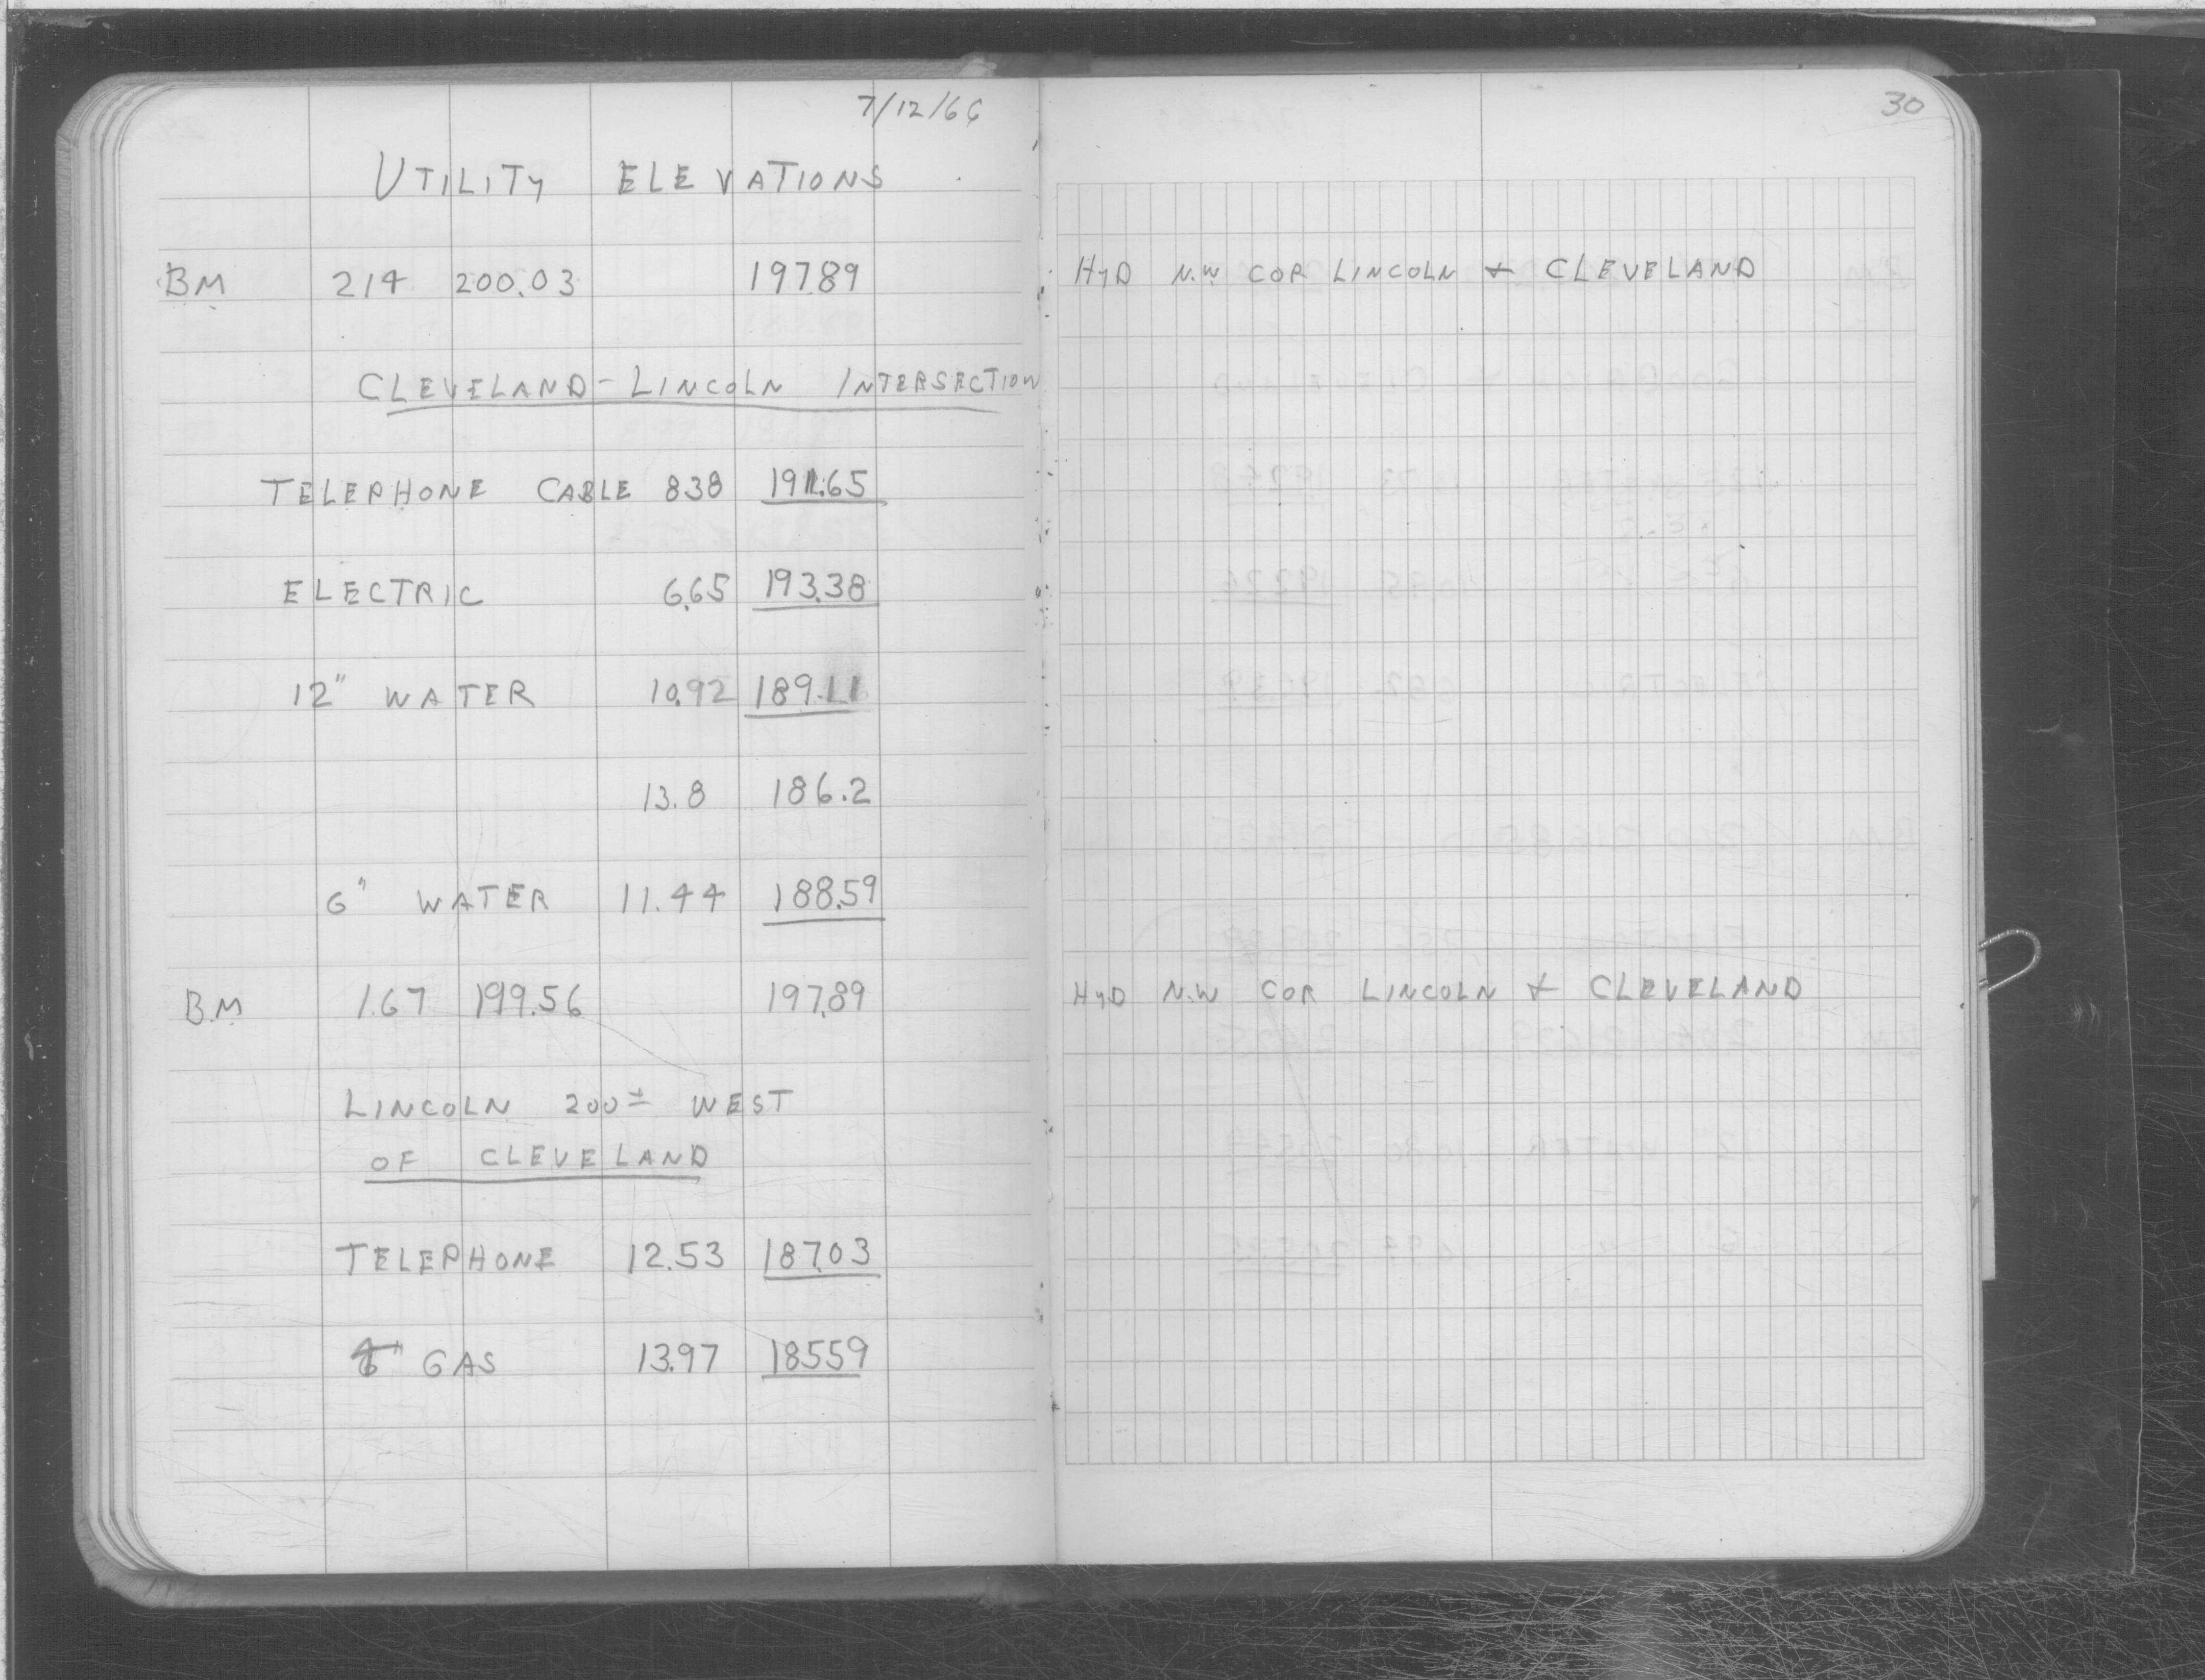 7/12/66
UTILITY ELEVATIONS
BM 214 200.03 197.89
CLEVELAND - LINCOLN INTERSECTION
TELEPHONE CABLE 838 191.65
ELECTRIC 6.65 193.38
12" WATER 10.92 189.11
13.8 186.2
6" WATER 11.44 188.59
BM 1.67 199.56 197.89
LINCOLN 200± WEST
OF CLEVELAND
TELEPHONE 12.53 187.03
GAS 13.97 18559
30
HYD N.W COR LINCOLN & CLEVELAND
HYD N.W COR LINCOLN & CLEVELAND